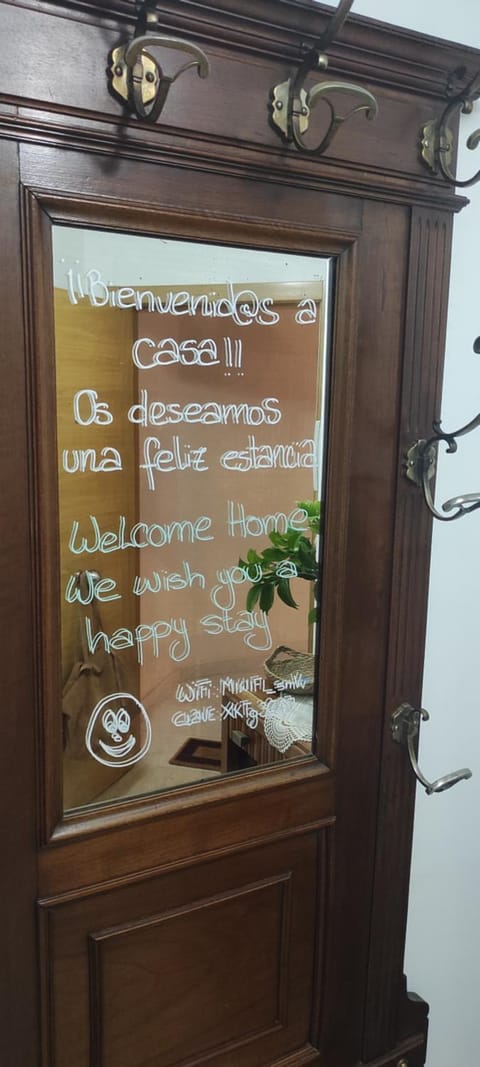 ¡¡Bienvenid@s a
casa!!!
Os deseamos
una feliz estancia
Welcome Home
We wish you a
happy stay
WiFi:
CLAVE: